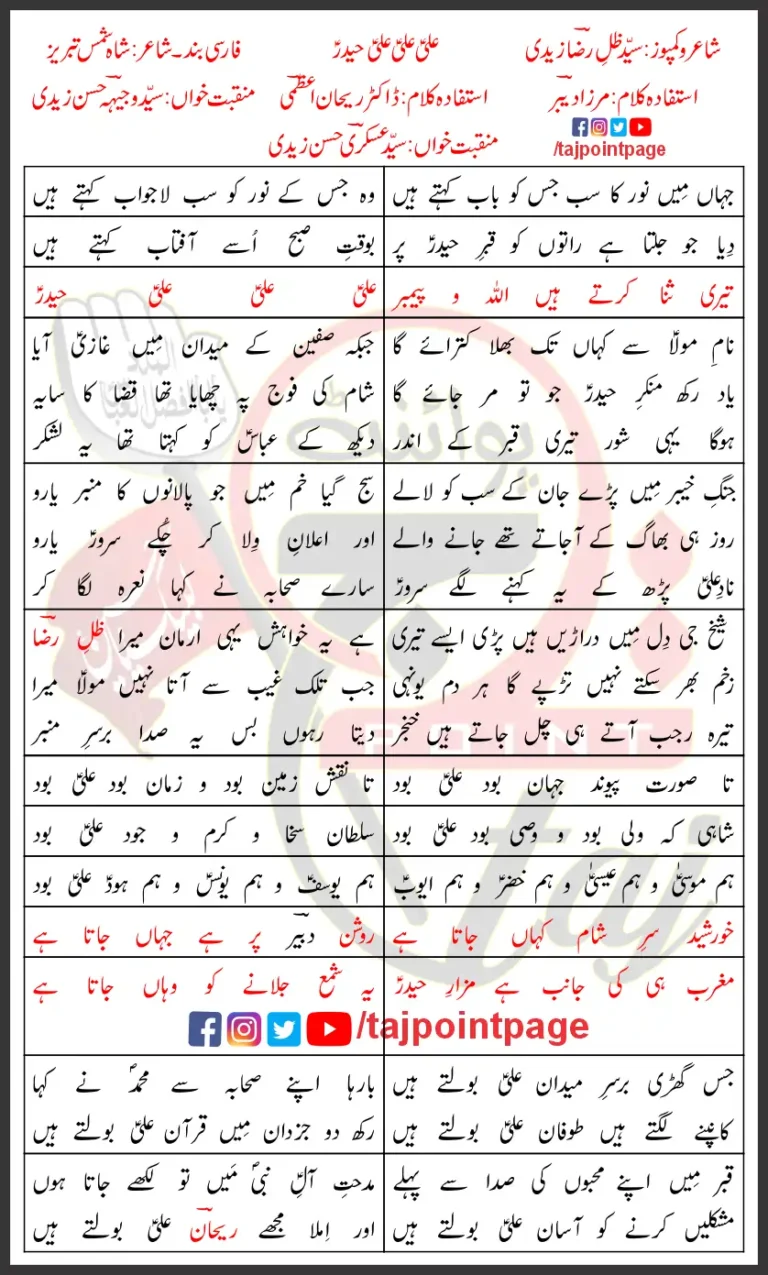 شاعر و کمپوز: سیّد ظلِ رضاؔ زیدی علیؑ علیؑ علیؑ حیدرؑ فارسی بند۔ شاعر: شاہ شمس تبریز
استفادہ کلام: مرزا دبیرؔ استفادہ کلام: ڈاکٹر ریحان اعظمیؔ منقبت خواں: سیّد وجیہہ حسن زیدی
منقبت خواں: سیّد عسکری حسن زیدی
/tajpointpage
جہاں مِیں نور کا سب جس کو باب کہتے ہیں وہ جس کے نور کو سب لاجواب کہتے ہیں
دِیا جو جلتا ہے راتوں کو قبرِ حیدرؑ پر بوقتِ صبح اُسے آفتاب کہتے ہیں
تیری ثنا کرتے ہیں اللہ و پیمبر علیؑ علیؑ علیؑ حیدرؑ
نامِ مولاؑ سے کہاں تک بھلا کترائے گا جبکہ صفین کے میدان مِیں غازیؑ آیا
یاد رکھ منکرِ حیدرؑ جو تو مر جائے گا شام کی فوج پہ چھایا تھا قضا کا سایہ
ہوگا یہی شور تیری قبر کے اندر دیکھ کے عباسؑ کو کہتا تھا یہ لشکر
جنگِ خیبر مِیں پڑے جان کے سب کو لالے سج گیا خم مِیں جو پالانوں کا منبر یارو
روز ہی بھاگ کے آجاتے تھے جانے والے اور اعلانِ وِلا کر چُکے سرورؐ یارو
نادِ علیؑ پڑھ کے یہ کہنے لگے سرورؐ سارے صحابہ نے کہا نعرہ لگا کر
شیخ جی دِل مِیں دراڑیں ہیں پڑی ایسے تیری ہے یہ خواہش یہی ارمان میرا ظلِ رضاؔ
زخم بھر سکتے نہیں تڑپے گا ہر دم یونہی جب تلک غیب سے آتا نہیں مولاؑ میرا
تیرہ رجب آتے ہی چل جاتے ہیں خنجر دیتا رہوں بس یہ صدا برسرِ منبر
تا صورت پیوند جہان بود علیؑ بود تا نقش زمین بود و زمان بود علیؑ بود
شاہی کہ ولی بود و وصی بود علیؑ بود سلطان سخا و کرم و جود علیؑ بود
ہم موسیٰؑ و ہم عیسیٰؑ و ہم خضرؑ و ہم ایوبؑ ہم یوسفؑ و ہم یونسؑ و ہم ہودؑ علیؑ بود
خورشید سرِ شام کہاں جاتا ہے روشن دبیرؔ پر ہے جہاں جاتا ہے
مغرب ہی کی جانب ہے مزارِ حیدرؑ یہ شمع جلانے کو وہاں جاتا ہے
/tajpointpage
جس گھڑی برسرِ میدان علیؑ بولتے ہیں بارہا اپنے صحابہ سے محمدؐ نے کہا
کانپنے لگتے ہیں طوفان علیؑ بولتے ہیں رکھ دو جزدان مِیں قرآن علیؑ بولتے ہیں
قبر مِیں اپنے محبوں کی صدا سے پہلے مدحتِ آلِ نبیؐ مَیں تو لکھے جاتا ہوں
مشکلیں کرنے کو آسان علیؑ بولتے ہیں اور اِملا مجھے ریحانؔ علیؑ بولتے ہیں